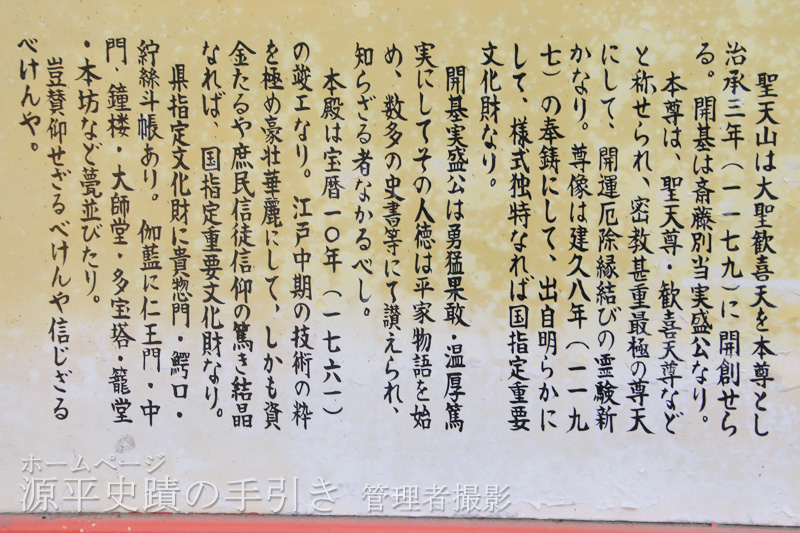 聖天山は大聖歓喜天を本尊とし
治承三年（一一七九）に開創せら
る。開基は斎藤別当実盛公なり。
本尊は、聖天尊・歓喜天尊など
と称せられ、密教甚重最極の尊天
にして、開運厄除縁結びの霊験新
かなり。尊像は建久八年（一一九
七）の奉鋳にして、出自明らかに
して、様式独特なれば国指定重要
文化財なり。
開基実盛公は勇猛果敢・温厚篤
実にしてその人徳は平家物語を始
め、数多の史書等にて讃えられ、
知らざる者なかるべし。
本殿は宝暦一〇年（一七六一）
の竣工なり。江戸中期の技術の粋
を極め豪壮華麗にして、しかも資
金たるや庶民信徒信仰の篤き結晶
なれば、国指定重要文化財なり。
県指定文化財に貴惣門・鰐口・
紵絲斗帳あり。伽藍に仁王門・中
門・鐘楼・大師堂・多宝塔・籠堂
・本坊など甍並びたり。
豈賛仰せざるべけんや信じざる
べけんや。
ホームページ
源平史蹟の手引き 管理者撮影